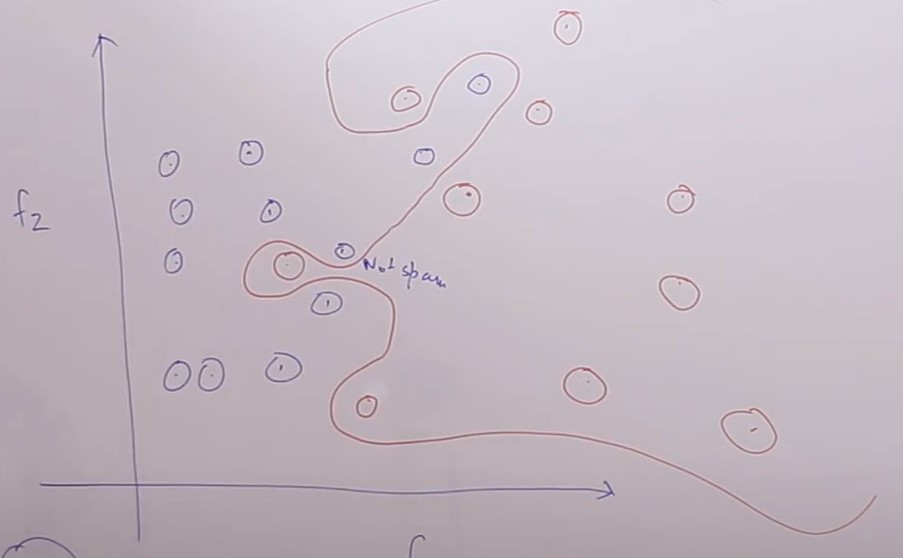 f2
Not spam